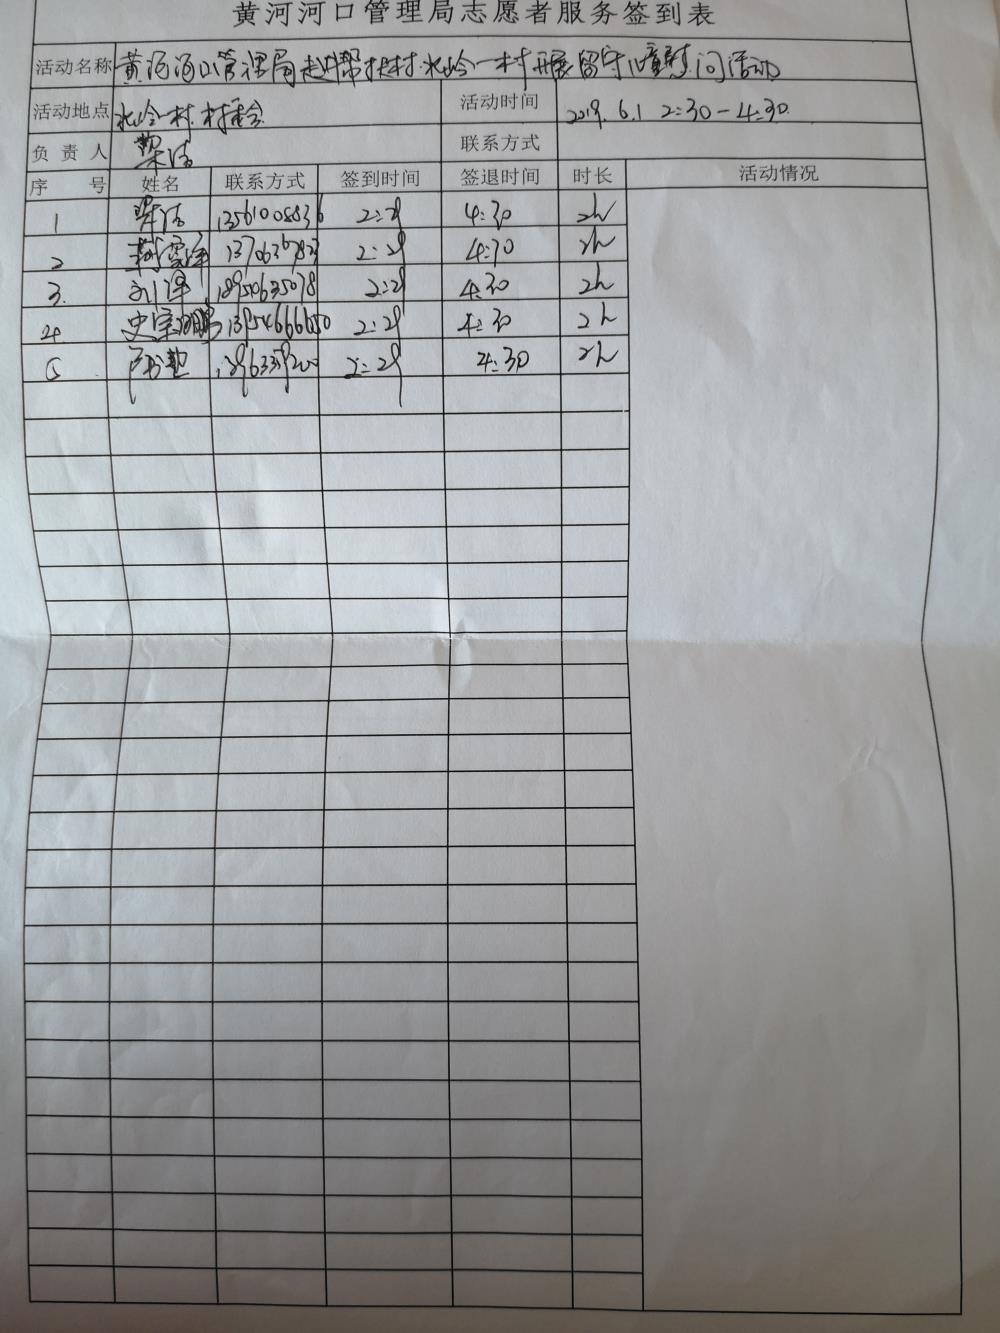 黄河河口管理局志愿者服务签到表
活动名称 黄河河口管理局赴帮扶村北岭一村开展留守儿童慰问活动
活动地点 北岭一村村委会 活动时间 2019.6.1 2:30-4:30
负责人 梁洁 联系方式
序号 姓名 联系方式 签到时间 签退时间 时长 活动情况
1 梁洁 2:29 4:30 2h
2 2:29 4:30 2h
3. 刘泽 18954635078 2:29 4:30 2h
4 2:29 4:30 2h
5 2:29 4:30 2h